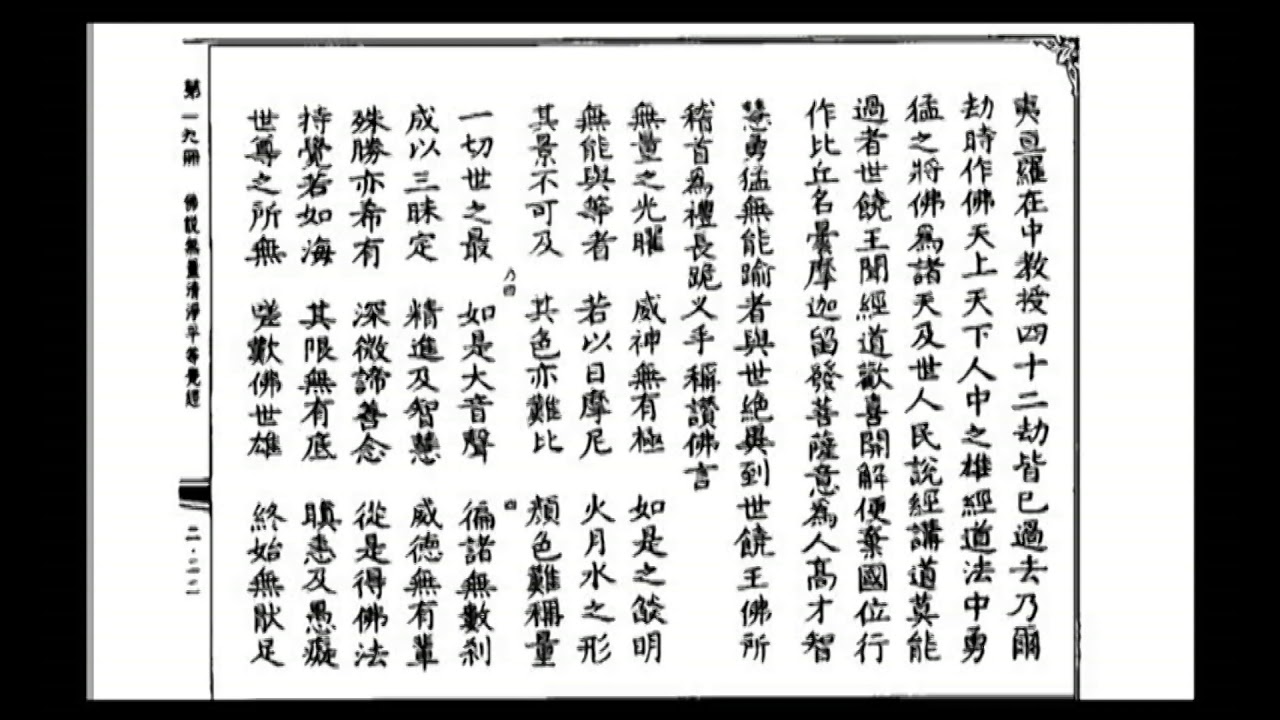 夷亘羅在中教授四十二劫皆已過去乃爾
劫時作佛天上天下人中之雄經道法中勇
猛之將佛為諸天及世人民說經講道莫能
過者世饒王聞經道歡喜開解便棄國位行
作比丘名曇摩迦留發菩薩意為人高才智
慧勇猛無能踰者與世絕異到世饒王佛所
稽首為禮長跪叉手稱讚佛言
無量之光曜 威神無有極 如是之燄明
無能與等者 若以日摩尼 火月水之形
其景不可及 其色亦難比 顏色難稱量
乃四 四
一切世之最 如是大音聲 徧諸無數剎
成以三昧定 精進及智慧 威德無有輩
殊勝亦希有 深微諦善念 從是得佛法
持覺若如海 其限無有底 瞋恚及愚癡
世尊之所無 嗟歎佛世雄 終始無猒足
第一九冊 佛說無量清淨平等覺經